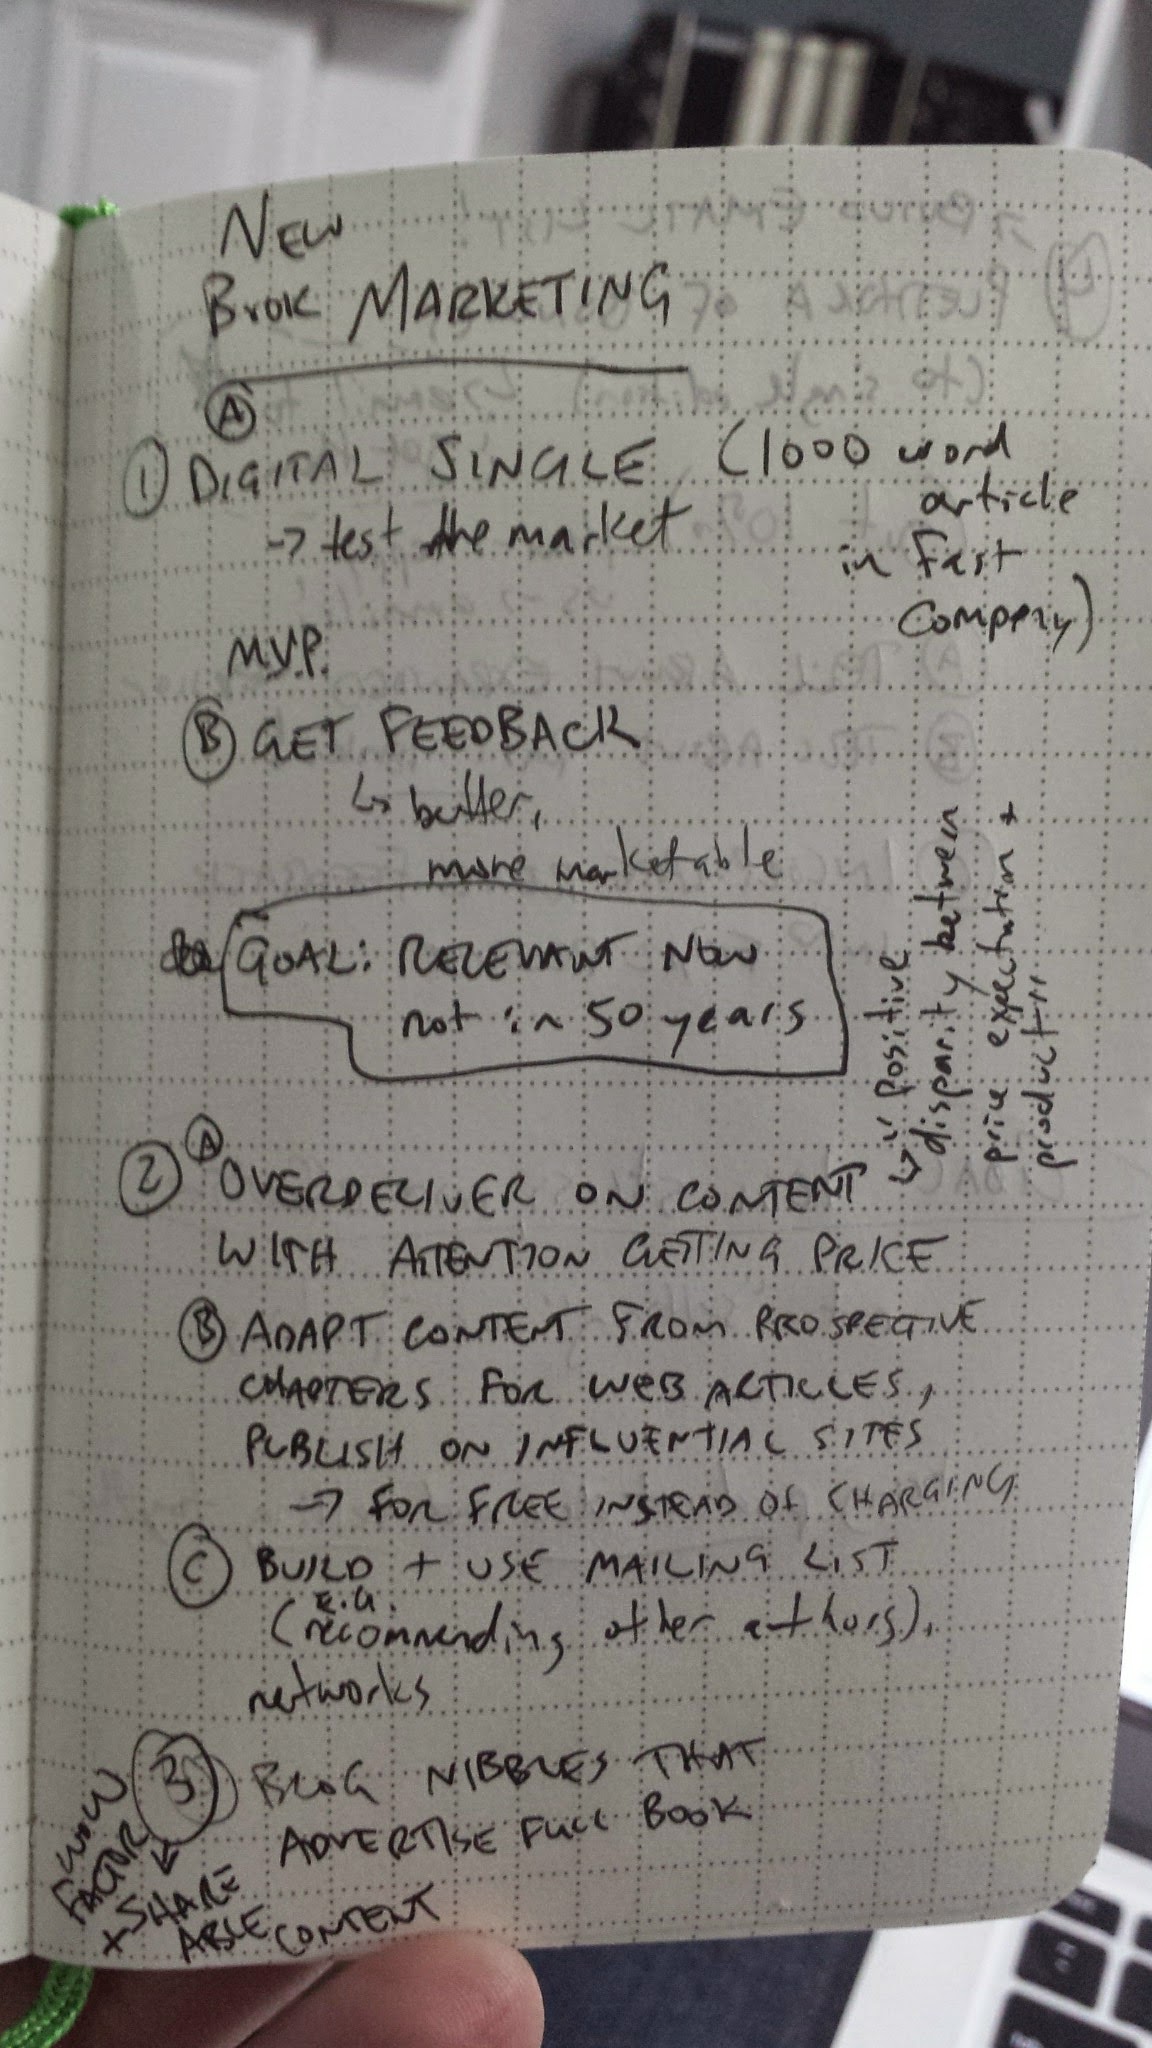 NEW
BOOK MARKETING
Ⓐ
① DIGITAL SINGLE (1000 word
article
in Fast
Company)
→ test the market
M.V.P.
Ⓑ GET FEEDBACK
↳ better,
more marketable
GOAL: RELEVANT NOW
not in 50 years
↳ "Positive
disparity between
price expectation +
product"
② Ⓐ OVERDELIVER ON CONTENT
WITH ATTENTION GETTING PRICE
Ⓑ ADAPT CONTENT FROM PROSPECTIVE
CHAPTERS FOR WEB ARTICLES,
PUBLISH ON INFLUENTIAL SITES
→ FOR FREE INSTEAD OF CHARGING
Ⓒ BUILD + USE MAILING LIST
E.G.
(recommending other authors),
networks
③ BLOG NIBBLES THAT
ADVERTISE FULL BOOK
WOW
FACTOR
+ SHARE
ABLE CONTENT